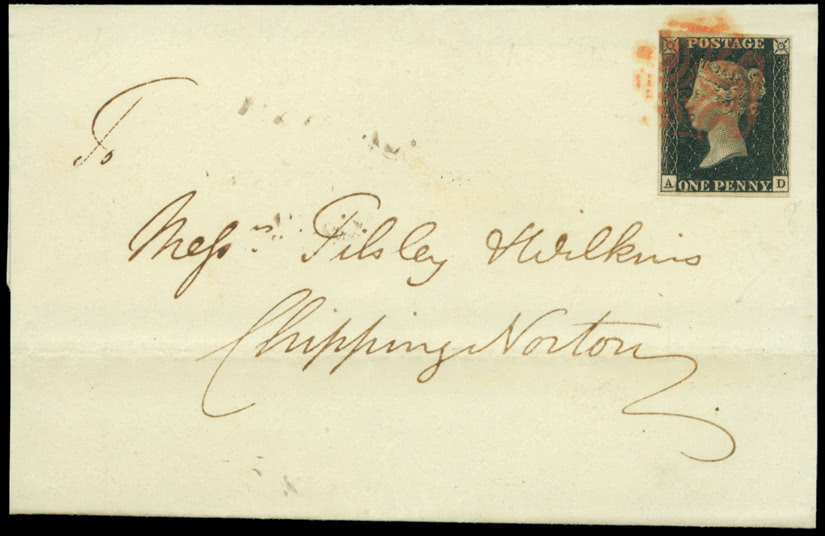 POSTAGE
A ONE PENNY D
To
Messrs. Tilsley & Wilkins
Chipping Norton